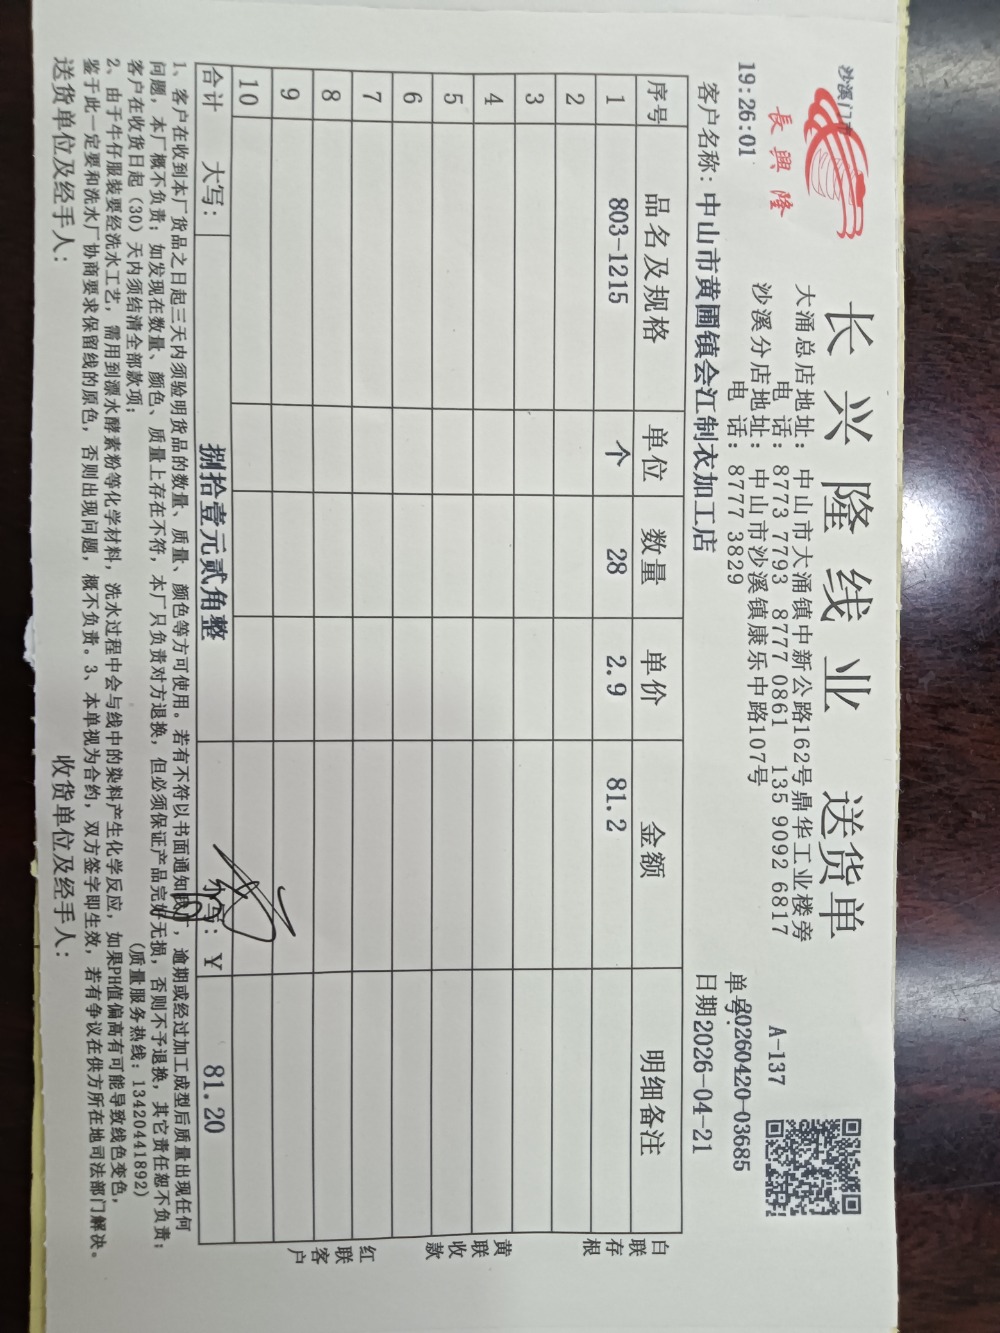 沙溪门市
長興隆
长兴隆线业 送货单
A-137
大涌总店地址：中山市大涌镇中新公路162号鼎华工业楼旁
电 话：8773 7793 8777 0861 135 9092 6817
沙溪分店地址：中山市沙溪镇康乐中路107号
19:26:01
电 话：8777 3829
单号：20260420-03685
客户名称：中山市黄圃镇会江制衣加工店 日期2026-04-21
序号 品名及规格 单位 数量 单价 金额 明细备注
1 803-1215 个 28 2.9 81.2
2
3
4
5
6
7
8
9
10
合计 大写： 捌拾壹元贰角整 小写：￥ 81.20
白联存根
黄联收款
红联客户
1、客户在收到本厂货品之日起三天内须验明货品的数量、质量、颜色等方可使用。若有不符以书面通知我厂，逾期或经过加工成型后质量出现任何
问题，本厂概不负责；如发现在数量、颜色、质量上存在不符，本厂只负责对方退换，但必须保证产品完好无损，否则不予退换，其它责任恕不负责；
客户在收货日起（30）天内须结清全部款项； （质量服务热线：13420441892）
2、由于牛仔服装要经洗水工艺，需用到漂水酵素粉等化学材料，洗水过程中会与线中的染料产生化学反应，如果PH值偏高有可能导致线色变色，
鉴于此一定要和洗水厂协商要求保留线的原色，否则出现问题，概不负责。3、本单视为合约，双方签字即生效，若有争议在供方所在地司法部门解决。
送货单位及经手人： 收货单位及经手人：